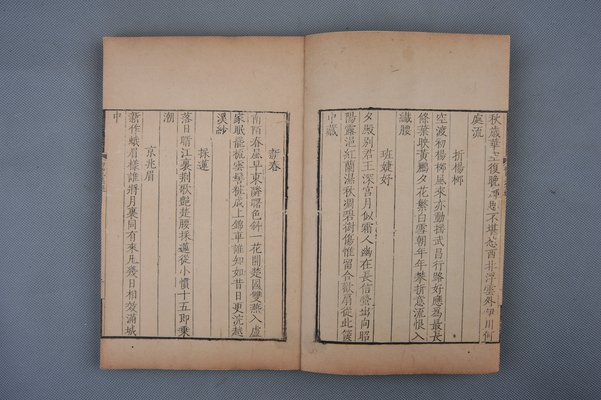 秋歲華空復晚鄉思不堪愁西北浮雲外伊川何
處流
折楊柳
空渡初楊柳風來亦動搖武昌行路好應為最長
條葉映黃鸝夕花繁白雪朝年年攀折意流恨入
纖腰
班婕妤
夕殿別君王深宮月似霜人幽在長信螢出向昭
陽露浥紅蘭濕秋凋碧樹傷惟留合歡扇從此篋
中藏
新春
南陌春風早東鄰曙色斜一花開楚國雙燕入盧
家眠罷梳雲髻粧成上錦車誰知如昔日更浣越
溪紗
採蓮
落日晴江裏荊歌艷楚腰採蓮從小慣十五即乘
潮
京兆眉
新作蛾眉樣誰將月裏同有來凡幾日相效滿城
中